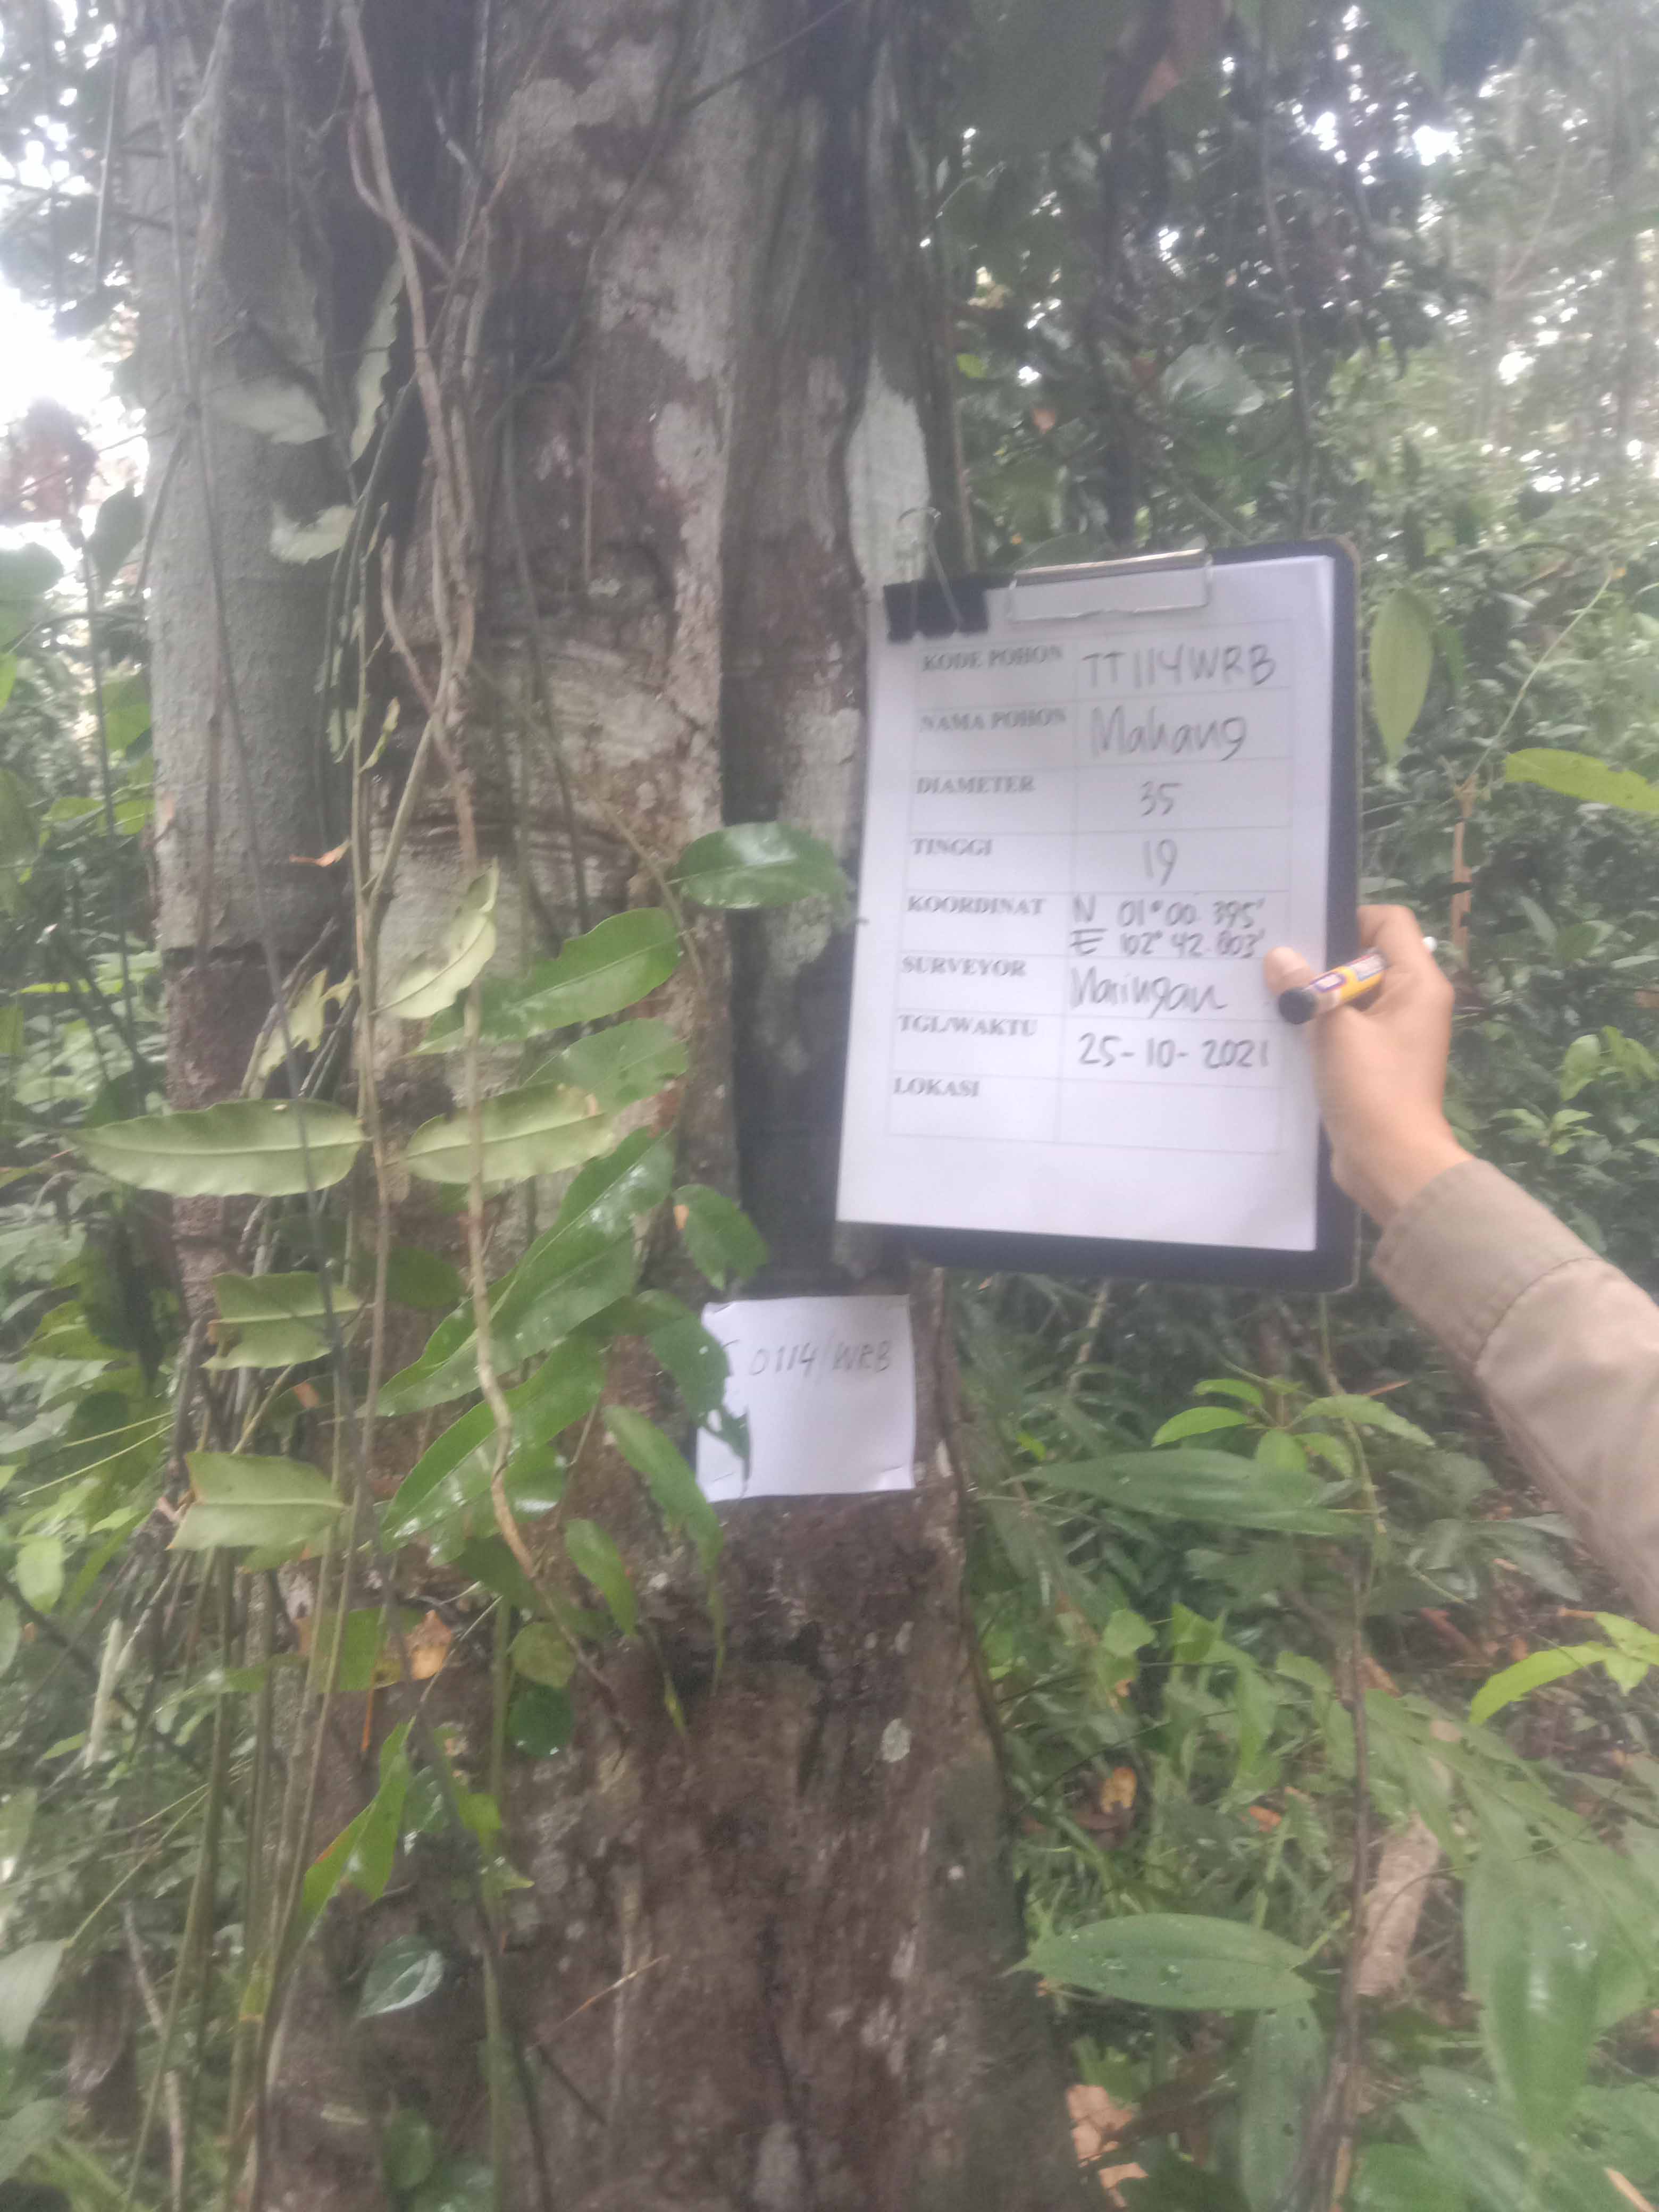 KODE POHON TT114WRB
NAMA POHON Mahang
DIAMETER 35
TINGGI 19
KOORDINAT N 01°00.395'
E 102°42.803'
SURVEYOR Maringan
TGL/WAKTU 25-10-2021
LOKASI
0114/WRB